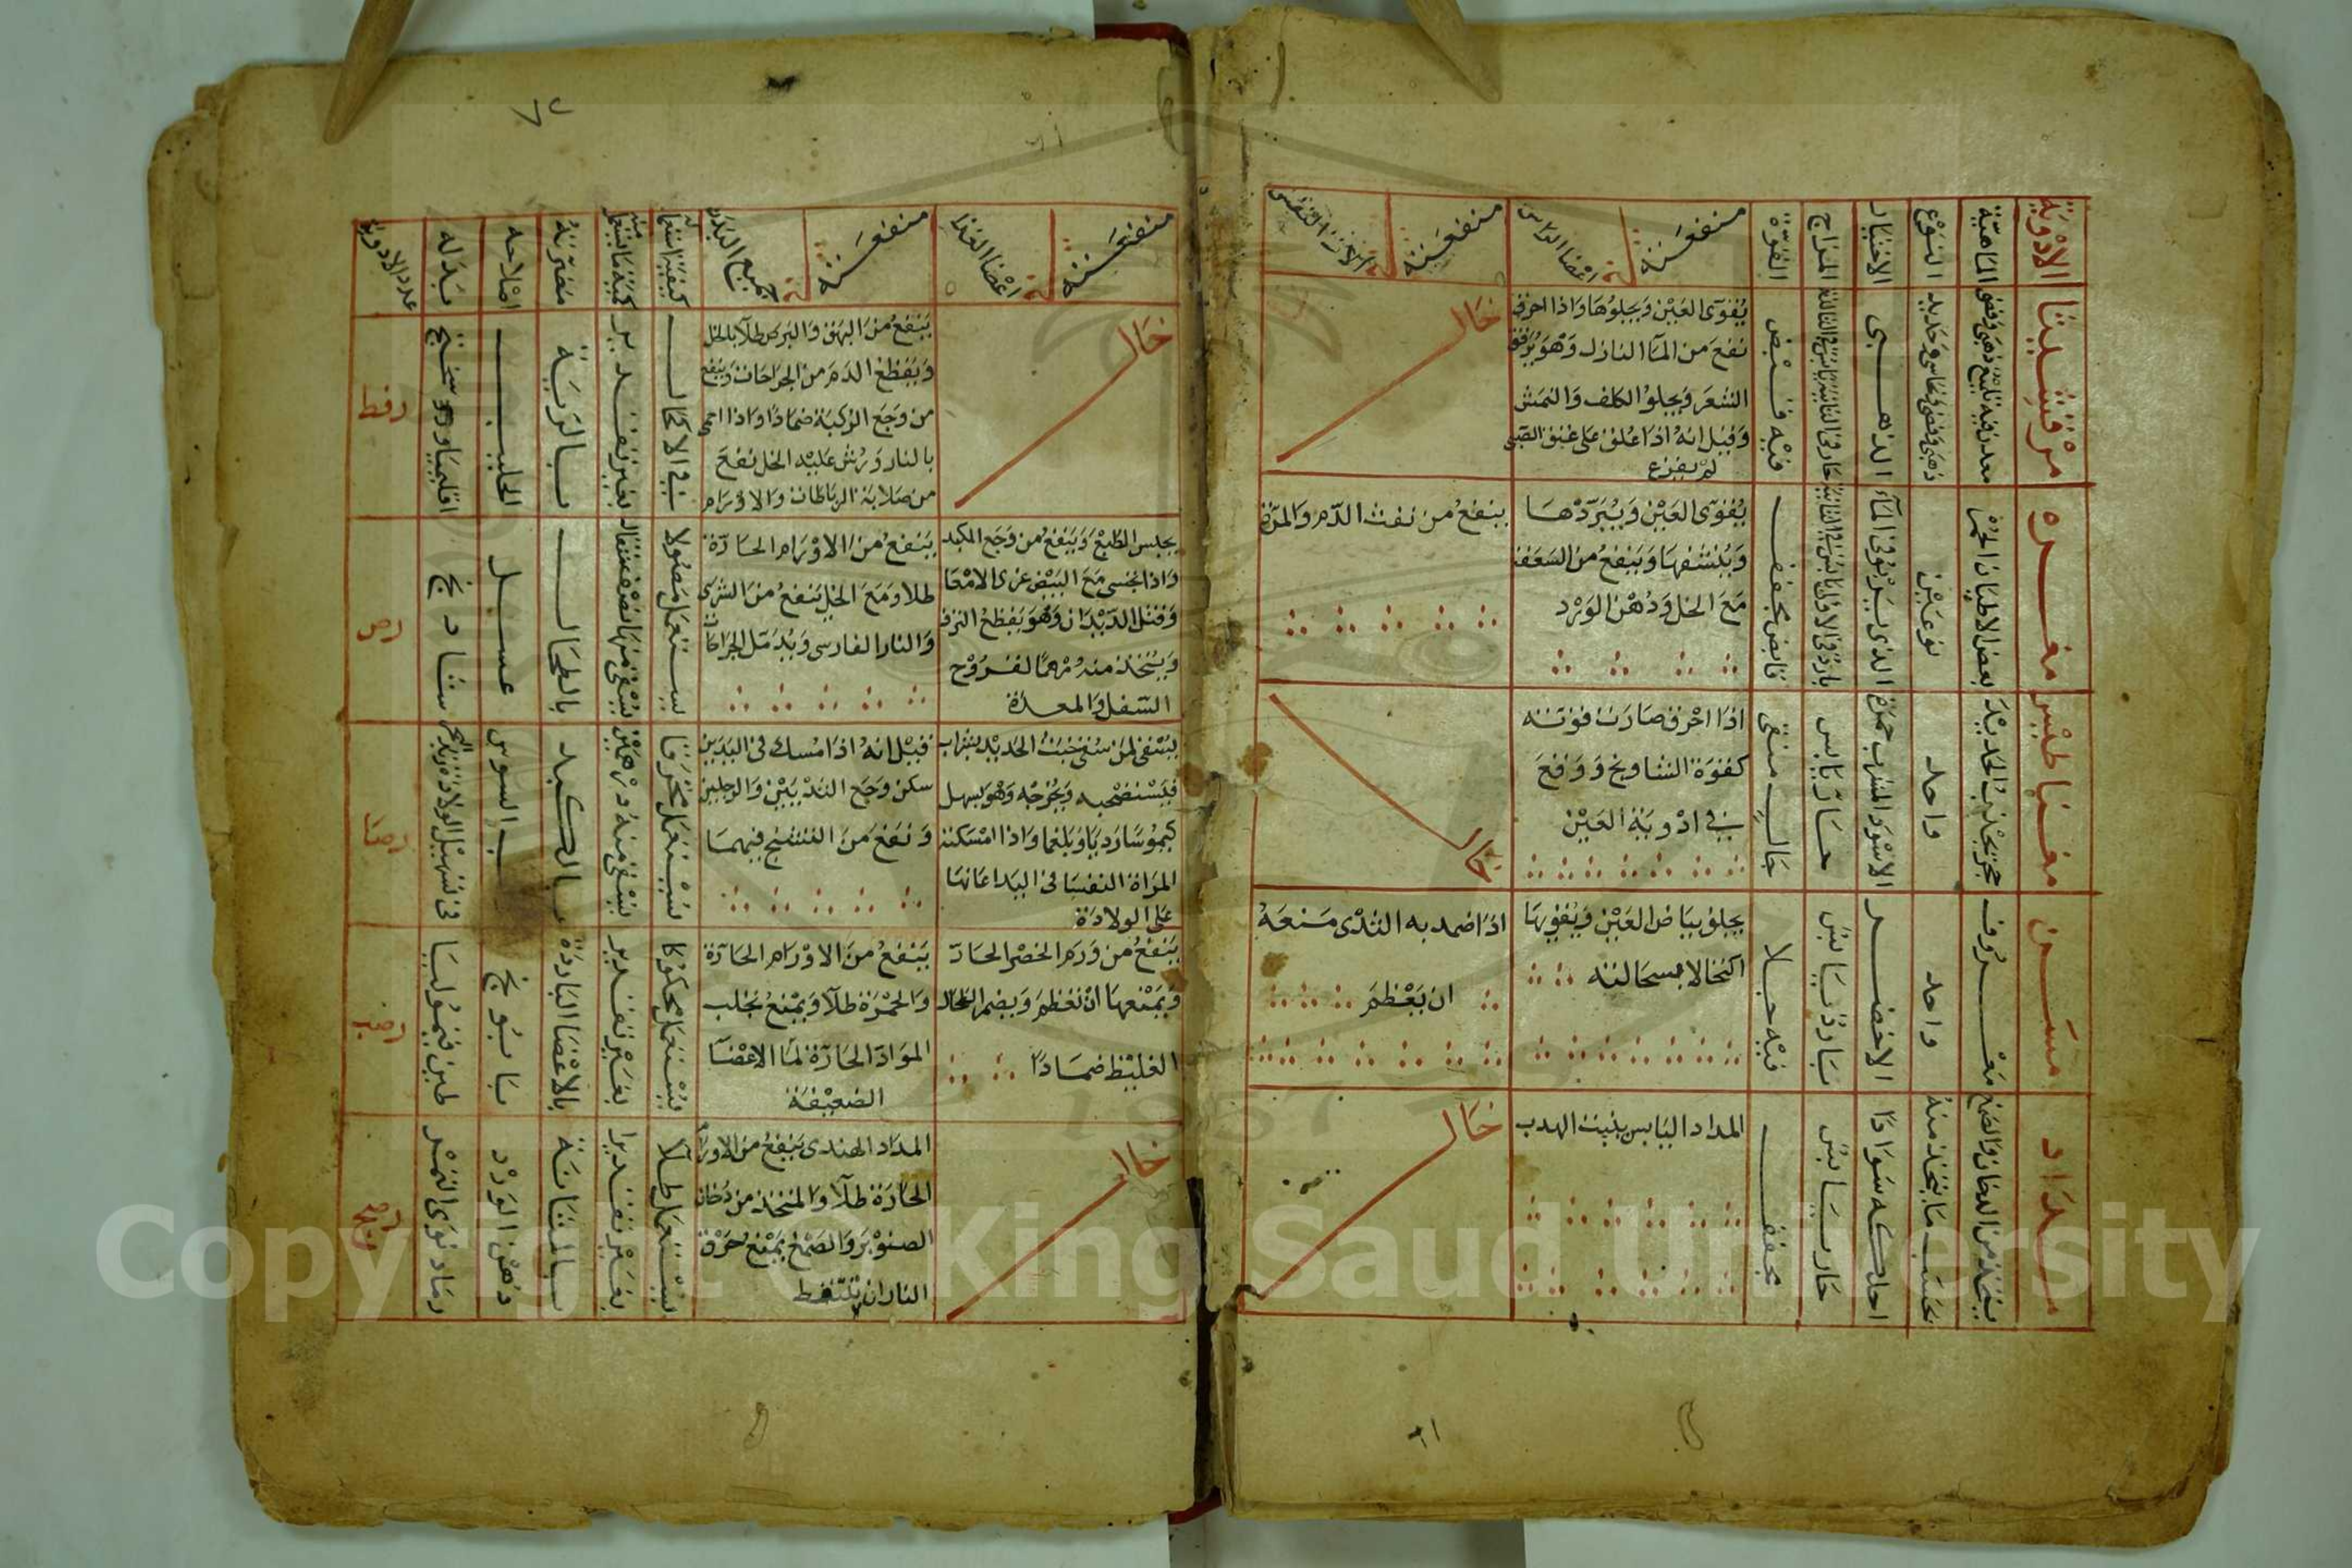 الادوية
الماهية
النوع
الاختيار
المزاج
القوة
منفعته في اعضا الراس
منفعته في الات التنفس
مرقشيثا
ذهبي وفضي ونحاسي وحديد
الذهبي
فيه قبض
يقوى العين ويجلوها واذا احرق
نفع من الماء النازل وهو يرقق
الشعر ويجلوا الكلف والنمش
وقيل انه اذا علق على عنق الصبى
لم يفزع
خال
مغره
بعض الاطيان الحمر
نوعين
الذى يربو في الماء
قابض مجفف
يقوى العين ويبردها
وينشفها وينفع من السعفة
مع الخل ودهن الورد
ينفع من نفث الدم والمرض
مغناطيس
حجر يجذب الحديد
واحد
الاسود المشرب حمرة
حار يابس
جالب منقى
اذا احرق صارت قوته
كقوة الشاونج ووقع
في ادوية العين
خال
مسن
معروف
واحد
الاخضر
بارد يابس
فيه جلا
يجلو بياض العين ويقويها
اكتحالا بسحالته
اذا ضمد به الثدى منعه
ان يعظم
مداد
يتخذ من الدخان والصمغ
بحسب ما يتخذ منه
احلكه سوادا
حار يابس
مجفف
المداد اليابس ينبت الهدب
خال
منفعته في اعضا الغذا
منفعته في جميع البدن
كيفية استعماله
مضرته
اصلاحه
بدله
عدد الادوية
خال
ينفع من البهق والبرص طلا بالخل
ويقطع الدم من الجراحات وينفع
من وجع الركبة ضمادا واذا احمى
بالنار ورش عليه الخل نفع
من صلابة الرباطات والاورام
في الاكحال
بغير تقدير
بالرية
الحليب
رفط
يحبس الطبع وينفع من وجع الكبد
واذا تحسى مع البيض غرى الامعا
وقتل الديدان وهو يقطع النزف
ويتخذ منه مرهما لقروح
السفل والمعدة
ينفع من الاورام الحارة
طلا ومع الخل ينفع من الشرى
والنار الفارسى ويدمل الجراحات
يستعمل مغسولا
يسقى منها نصف مثقال
بالطحال
عسل
شادنج
رص
يسقى لمن سقى خبث الحديد بشراب
فيستصحبه ويخرجه وهو يسهل
كيموسا رديا وبلغما واذا امسكته
المراة النفسا في اليد اعانها
على الولادة
قيل انه اذا امسك في اليدين
سكن وجع اليدين والرجلين
ونفع من التشنج فيهما
يستعمل محرقا
يسقى منه درهمين
بالكبد
ب السوس
رصا
ينفع من ورم الخصر الحار
ويمنعها ان تعظم ويضمر الطحال
الغليظ ضمادا
ينفع من الاورام الحارة
والحمرة طلا ويمنع تجلب
المواد الحارة لما الاعضا
الضعيفة
يستعمل محكوكا
بغير تقدير
بالاعضا الباردة
بابونج
طين قيموليا
رصب
خال
المداد الهندى ينفع من الاورام
الحارة طلا والمتخذ من دخان
الصنوبر والصمغ يمنع حرق
النار ان يتنفط
يستعمل طلا
بغير تقديرا
بالمثانة
دهن الورد
رماد نوى التمر
رصج
٦١
Copyright © King Saud University
1957